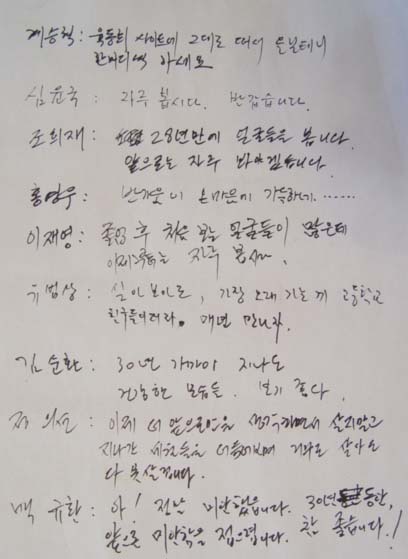 계승혁 : 육동회 사이트에 그대로 떠서 올릴테니
한마디씩 하세요
심윤국 : 자주 봅시다. 반갑습니다.
조희재 : 28년만에 얼굴들을 봅니다.
앞으로는 자주 봐야겠습니다.
홍영우 : 반가움이 온마음에 가득하네......
이재영 : 졸업 후 처음 보는 얼굴들이 많은데
이제부터는 자주 봅시다.
유범상 : 살아보아도, 가장 오래 가는 게 고등학교
친구들이더라. 매년 만나자.
김순환 : 30년 가까이 지나도
건강한 모습들. 보기 좋다.
의선 : 이제 더 앞으로만을 생각하면서 살지말고
지나간 세월들을 더듬어보며 거꾸로 살아도
다 못살겁니다.
백규환 : 아! 전난 미안했습니다. 30년 동안,
앞으로 미안함을 접으렵니다. 참 좋습니다!